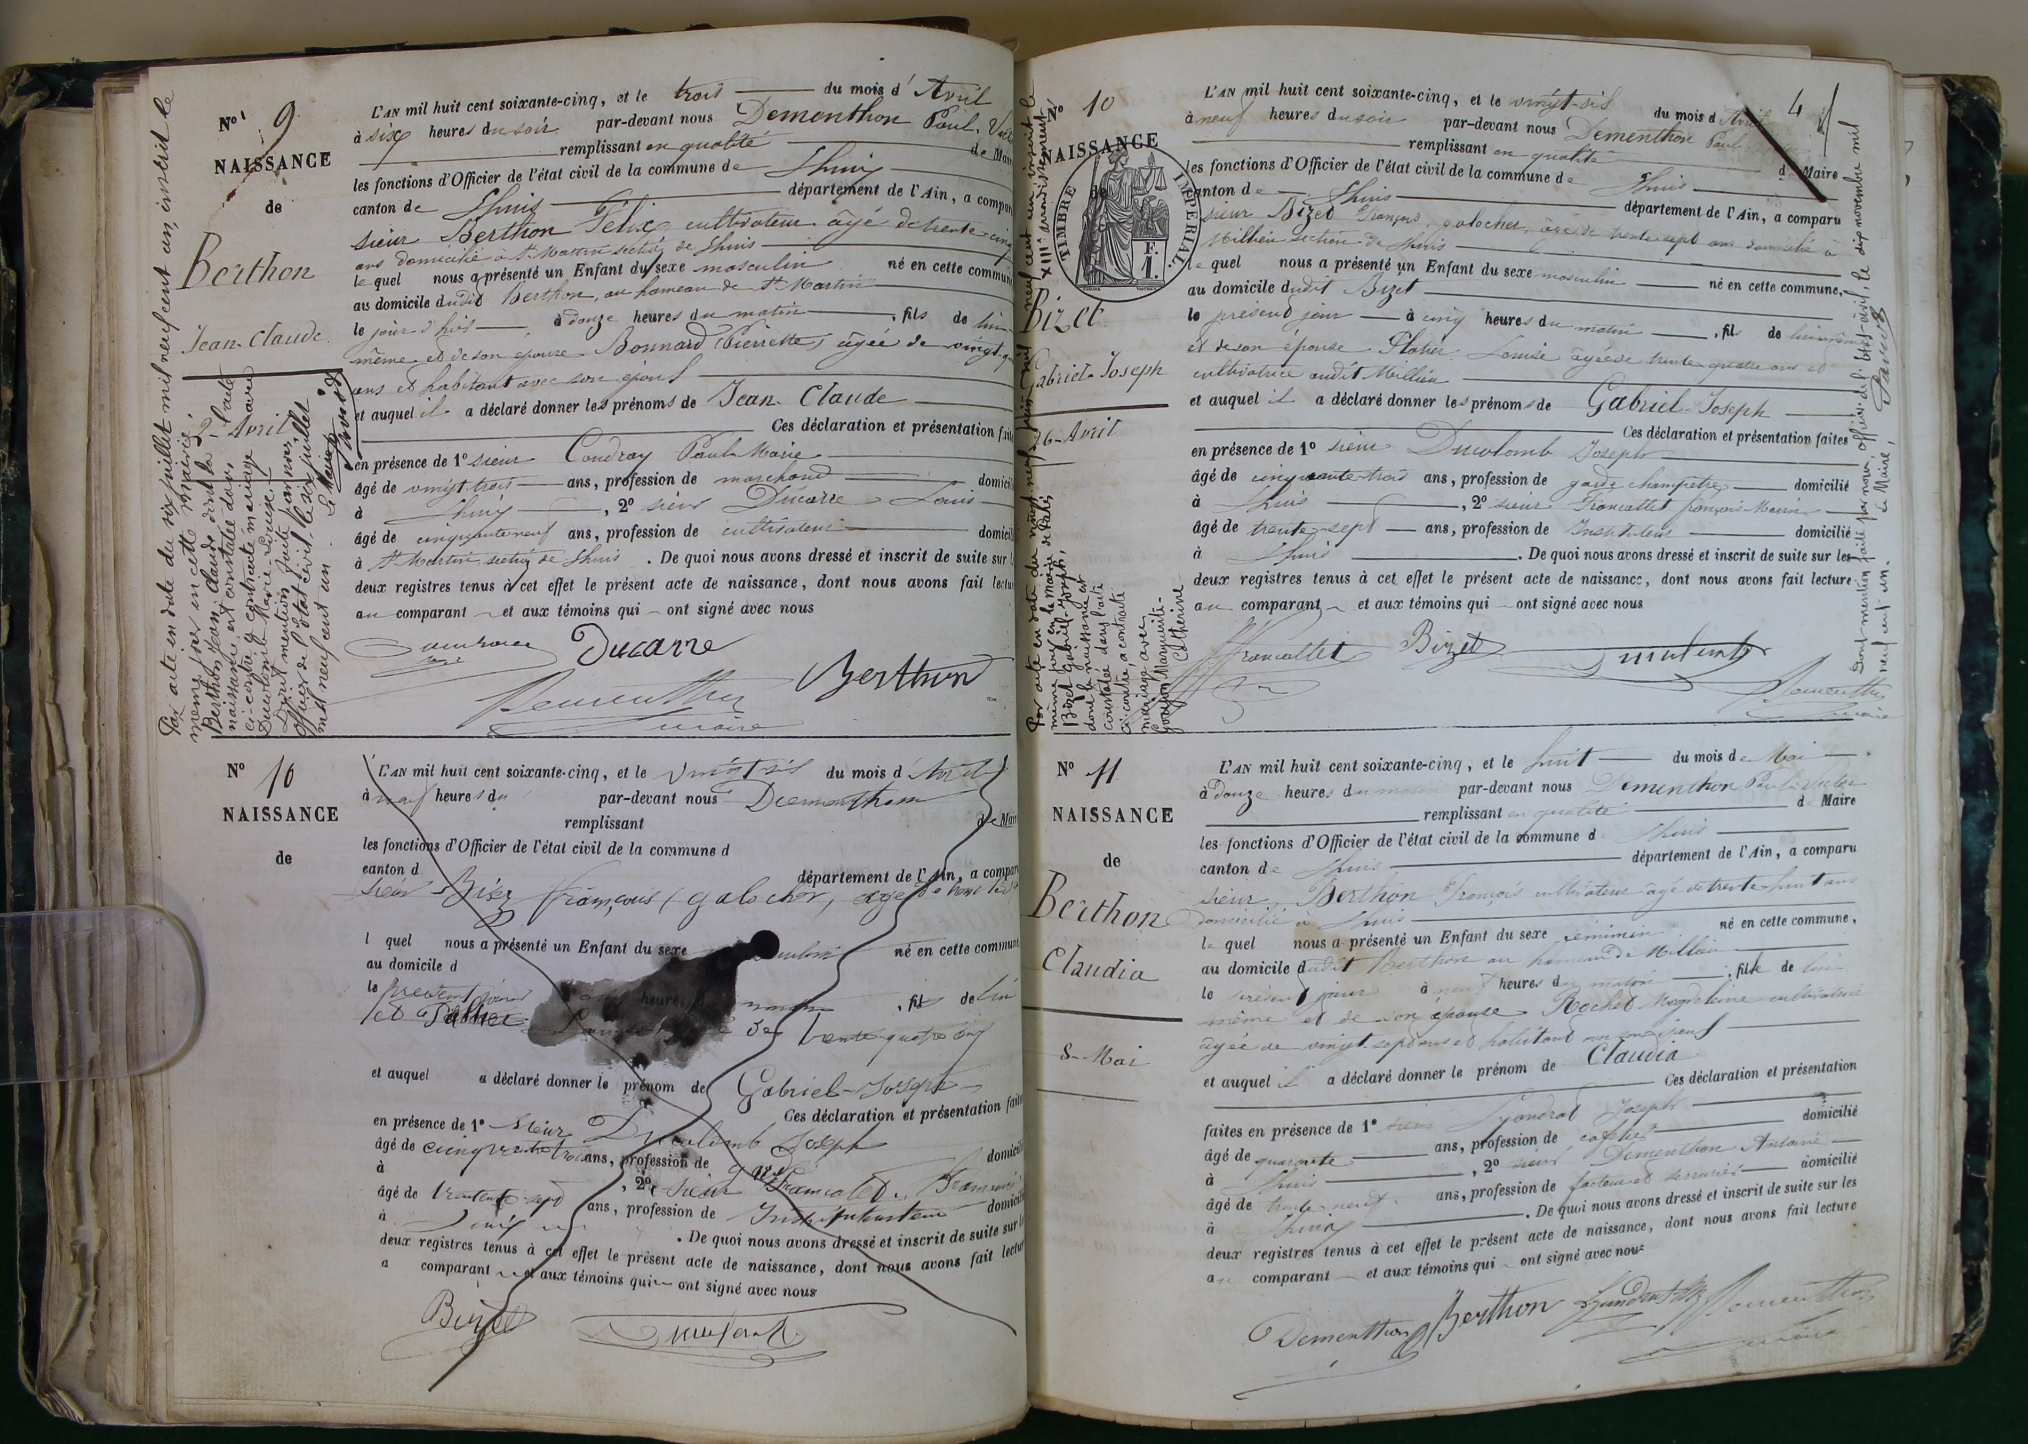 N° 9
NAISSANCE
de
Berthon
Jean-Claude
3 Avril
L'AN mil huit cent soixante-cinq, et le trois du mois d'Avril
à six heures du soir par-devant nous Dementhon Paul
remplissant en qualité de Maire
les fonctions d'Officier de l'état civil de la commune de Lhuis
canton de Lhuis département de l'Ain, a comparu
sieur Berthon Félix cultivateur âgé de trente-cinq
ans domicilié à St Martin section de Lhuis
lequel nous a présenté un Enfant du sexe masculin né en cette commune
au domicile dudit Berthon, au hameau de St Martin
le jour d'hier à douze heures du matin, fils de lui
même et de son épouse Bonnard Pierrette, âgée de vingt
ans et habitant avec son époux
et auquel il a déclaré donner les prénoms de Jean Claude
Ces déclaration et présentation faites
en présence de 1° sieur Coudray Paul Marie
âgé de vingt trois ans, profession de marchand domicilié
à Lhuis, 2° sieur Ducarre Louis
âgé de cinquante neuf ans, profession de cultivateur domicilié
à St Martin section de Lhuis. De quoi nous avons dressé et inscrit de suite sur
deux registres tenus à cet effet le présent acte de naissance, dont nous avons fait lecture
au comparant et aux témoins qui ont signé avec nous
Ducarre
Berthon
Dementhon
maire
Par acte en date du six juillet mil neuf cent un, inscrit le
même jour en cette mairie,
Berthon Jean Claude dont la
naissance est constatée dans l'acte
ci-contre a contracté mariage avec
Ducolomb Marie Louise.
Dont mention faite par nous
officier de l'état civil, le six juillet
mil neuf cent un. Le Maire,
N° 10
NAISSANCE
de
L'AN mil huit cent soixante-cinq, et le vingt six du mois d'Avril
à neuf heures du par-devant nous Dementhon
remplissant de Maire
les fonctions d'Officier de l'état civil de la commune d
canton d
département de l'Ain, a comparu
sieur Bizet François, galocher, âgé de trente sept
l quel nous a présenté un Enfant du sexe né en cette commune
au domicile d
le présent jour heures, fils de lui
et trente quatre ans
et auquel a déclaré donner le prénom de Gabriel-Joseph
Ces déclaration et présentation faites
en présence de 1° sieur Ducolomb Joseph
âgé de cinquante trois ans, profession de domicilié
à, 2° sieur François
âgé de trente sept ans, profession de Instituteur domicilié
à. De quoi nous avons dressé et inscrit de suite sur
deux registres tenus à cet effet le présent acte de naissance, dont nous avons fait lecture
a comparant et aux témoins qui ont signé avec nous
Bizet
N° 10
NAISSANCE
de
TIMBRE IMPERIAL
F. 1.
Bizet
Gabriel-Joseph
26 Avril
4
L'AN mil huit cent soixante-cinq, et le vingt-six du mois d'Avril
à neuf heures du soir par-devant nous Dementhon Paul
remplissant en qualité de Maire
les fonctions d'Officier de l'état civil de la commune de Lhuis
canton de Lhuis département de l'Ain, a comparu
sieur Bizet François, galocher, âgé de trente sept ans domicilié à
Millieu section de Lhuis
lequel nous a présenté un Enfant du sexe masculin né en cette commune,
au domicile dudit Bizet
le présent jour à cinq heures du matin, fils de lui même
et de son épouse Louise âgée de trente quatre ans et
cultivatrice audit Millieu
et auquel il a déclaré donner les prénoms de Gabriel Joseph
Ces déclaration et présentation faites
en présence de 1° sieur Ducolomb Joseph
âgé de cinquante trois ans, profession de garde champêtre domicilié
à Lhuis, 2° sieur François Marie
âgé de trente sept ans, profession de Instituteur domicilié
à Lhuis. De quoi nous avons dressé et inscrit de suite sur les
deux registres tenus à cet effet le présent acte de naissance, dont nous avons fait lecture
au comparant et aux témoins qui ont signé avec nous
Bizet
Dementhon
maire
même jour en la mairie de Paris,
XIIIe arrondissement
Bizet Gabriel-Joseph,
dont la naissance est
constatée dans l'acte
ci-contre, a contracté
mariage avec
Marguerite-
Catherine
Dont mention faite par nous officier de l'état-civil, le dix novembre mil
neuf cent un. Le Maire,
N° 11
NAISSANCE
de
Berthon
Claudia
8 Mai
L'AN mil huit cent soixante-cinq, et le huit du mois de Mai
à douze heures du matin par-devant nous Dementhon Paul
remplissant en qualité de Maire
les fonctions d'Officier de l'état civil de la commune de Lhuis
canton de Lhuis département de l'Ain, a comparu
sieur Berthon François cultivateur âgé de trente huit ans
domicilié à Lhuis
lequel nous a présenté un Enfant du sexe féminin né en cette commune,
au domicile dudit Berthon au hameau de Millieu
le présent jour à neuf heures du matin, fille de lui
même et de son épouse Rochet Magdeleine cultivatrice
âgée de vingt sept ans et habitant
et auquel il a déclaré donner le prénom de Claudia
Ces déclaration et présentation
faites en présence de 1° sieur Joseph domicilié
âgé de quarante ans, profession de
à Lhuis, 2° sieur Dementhon Antoine
âgé de trente neuf ans, profession de domicilié
à Lhuis. De quoi nous avons dressé et inscrit de suite sur les
deux registres tenus à cet effet le présent acte de naissance, dont nous avons fait lecture
au comparant et aux témoins qui ont signé avec nous
Dementhon
Berthon
Dementhon